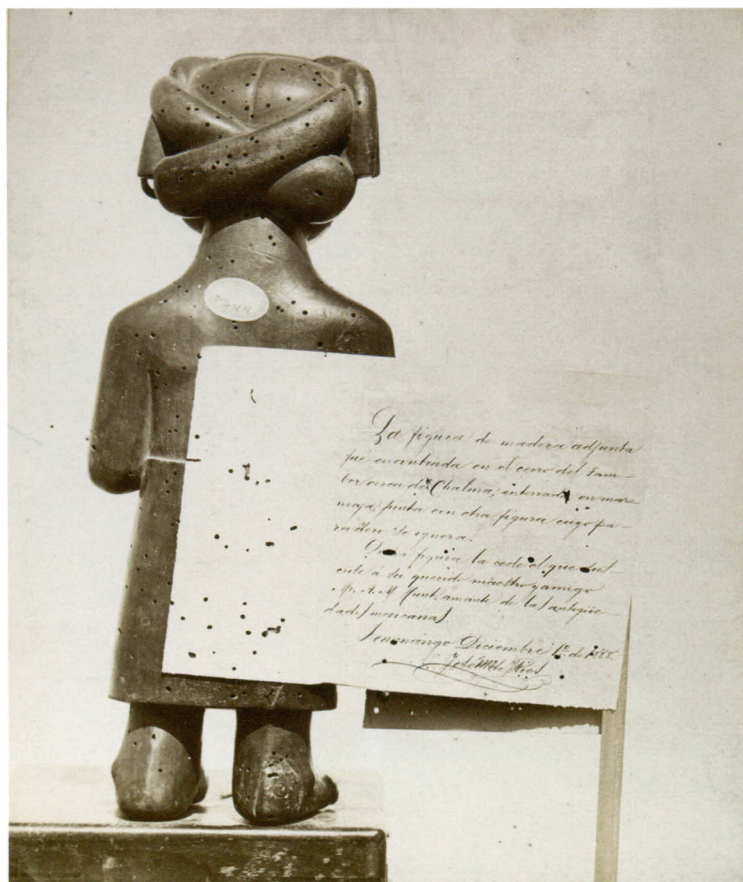 La figura de madera adjunta
fué encontrada en el cerro del Tam-
bor cerca de Chalma, enterrada en mar-
maja, junta con otra figura cuyo pa-
radero se ignora.
figura la cede el que sus-
cribe á su querido maestro y amigo
A. M. amante de las antigüe-
dades mexicanas
Tenancingo Diciembre 1º de 188